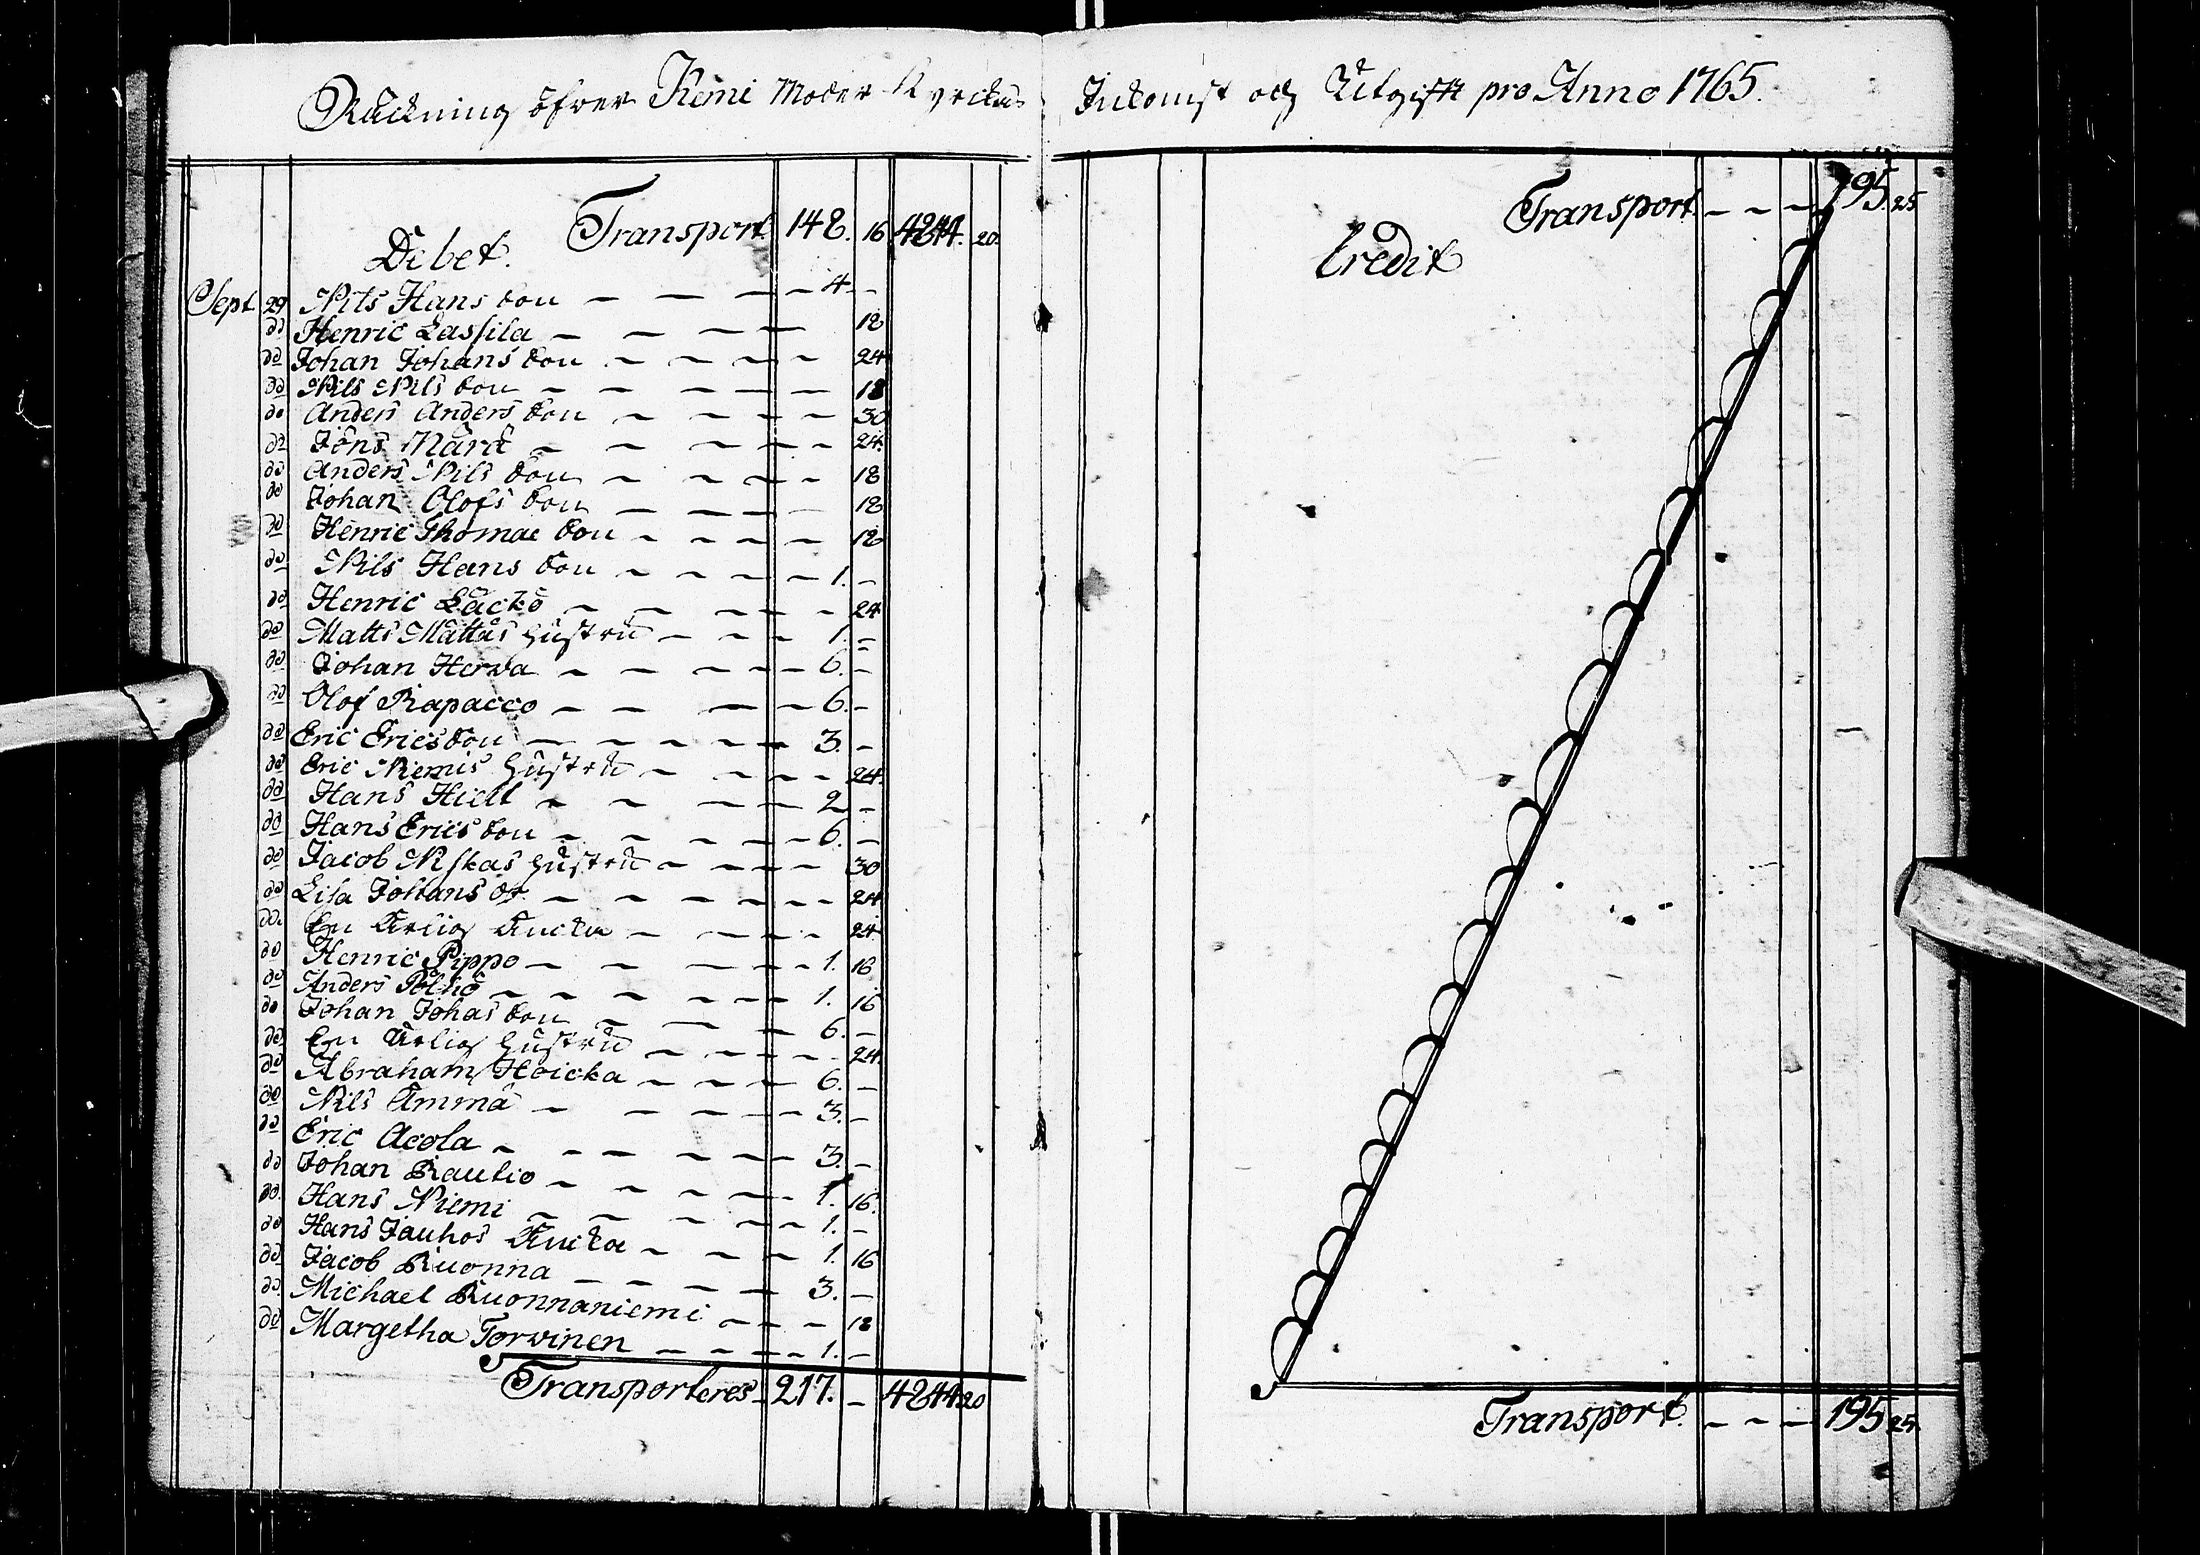 Räckning öfver Kemi Moder Kyrckas Inkomst och Utgift pro Anno 1765.
Transport 148. 16 4244. 20.
Debet.
Sept. 29 Nils Hans son — — — 4. —
do Henric Lassila — — — 18
do Johan Johans son — — — 24
do Nils Nils son — — — 18
do Anders Anders son — — — 30
do Jöns Märd — — — 24.
do Anders Nils son — — — 18
do Johan Olofs son — — — 18
do Henric Thomae son — — — 18
do Nils Hans son — — — 1. —
do Henric Läckö — — — 24
do Matts Mattus hustru — — — 1. —
do Johan Herva — — — 6. —
do Olof Rapacco — — — 6. —
do Eric Erics son — — — 3. —
do Eric Niemis hustru — — — 24.
do Hans Hiett — — — 2 —
do Hans Erics son — — — 6. —
do Jacob Niskas hustru — — — 30
do Lisa Johans dr. — — — 24
do En ärlig Encka — — — 24
do Henric Pippo — — — 1. 16
do Anders Pölhö — — — 1. 16
do Johan Johas son — — — 6. —
do En ärlig hustru — — — 24.
do Abraham Hoicka — — — 6. —
do Nils Ämmä — — — 3. —
do Eric Acola — — — 3. —
do Johan Rautio — — — 1. 16.
do Hans Niemi — — — 1. —
do Hans Jauhos Encka — — — 1. 16
do Jacob Ruonna — — — 3. —
do Michael Ruonnaniemi — — — 18
do Margetha Torvinen — — — 1. —
Transporteres 217. — 4244 20
Transport — — — 195. 25
Credit
Transport. — — — 195 25.